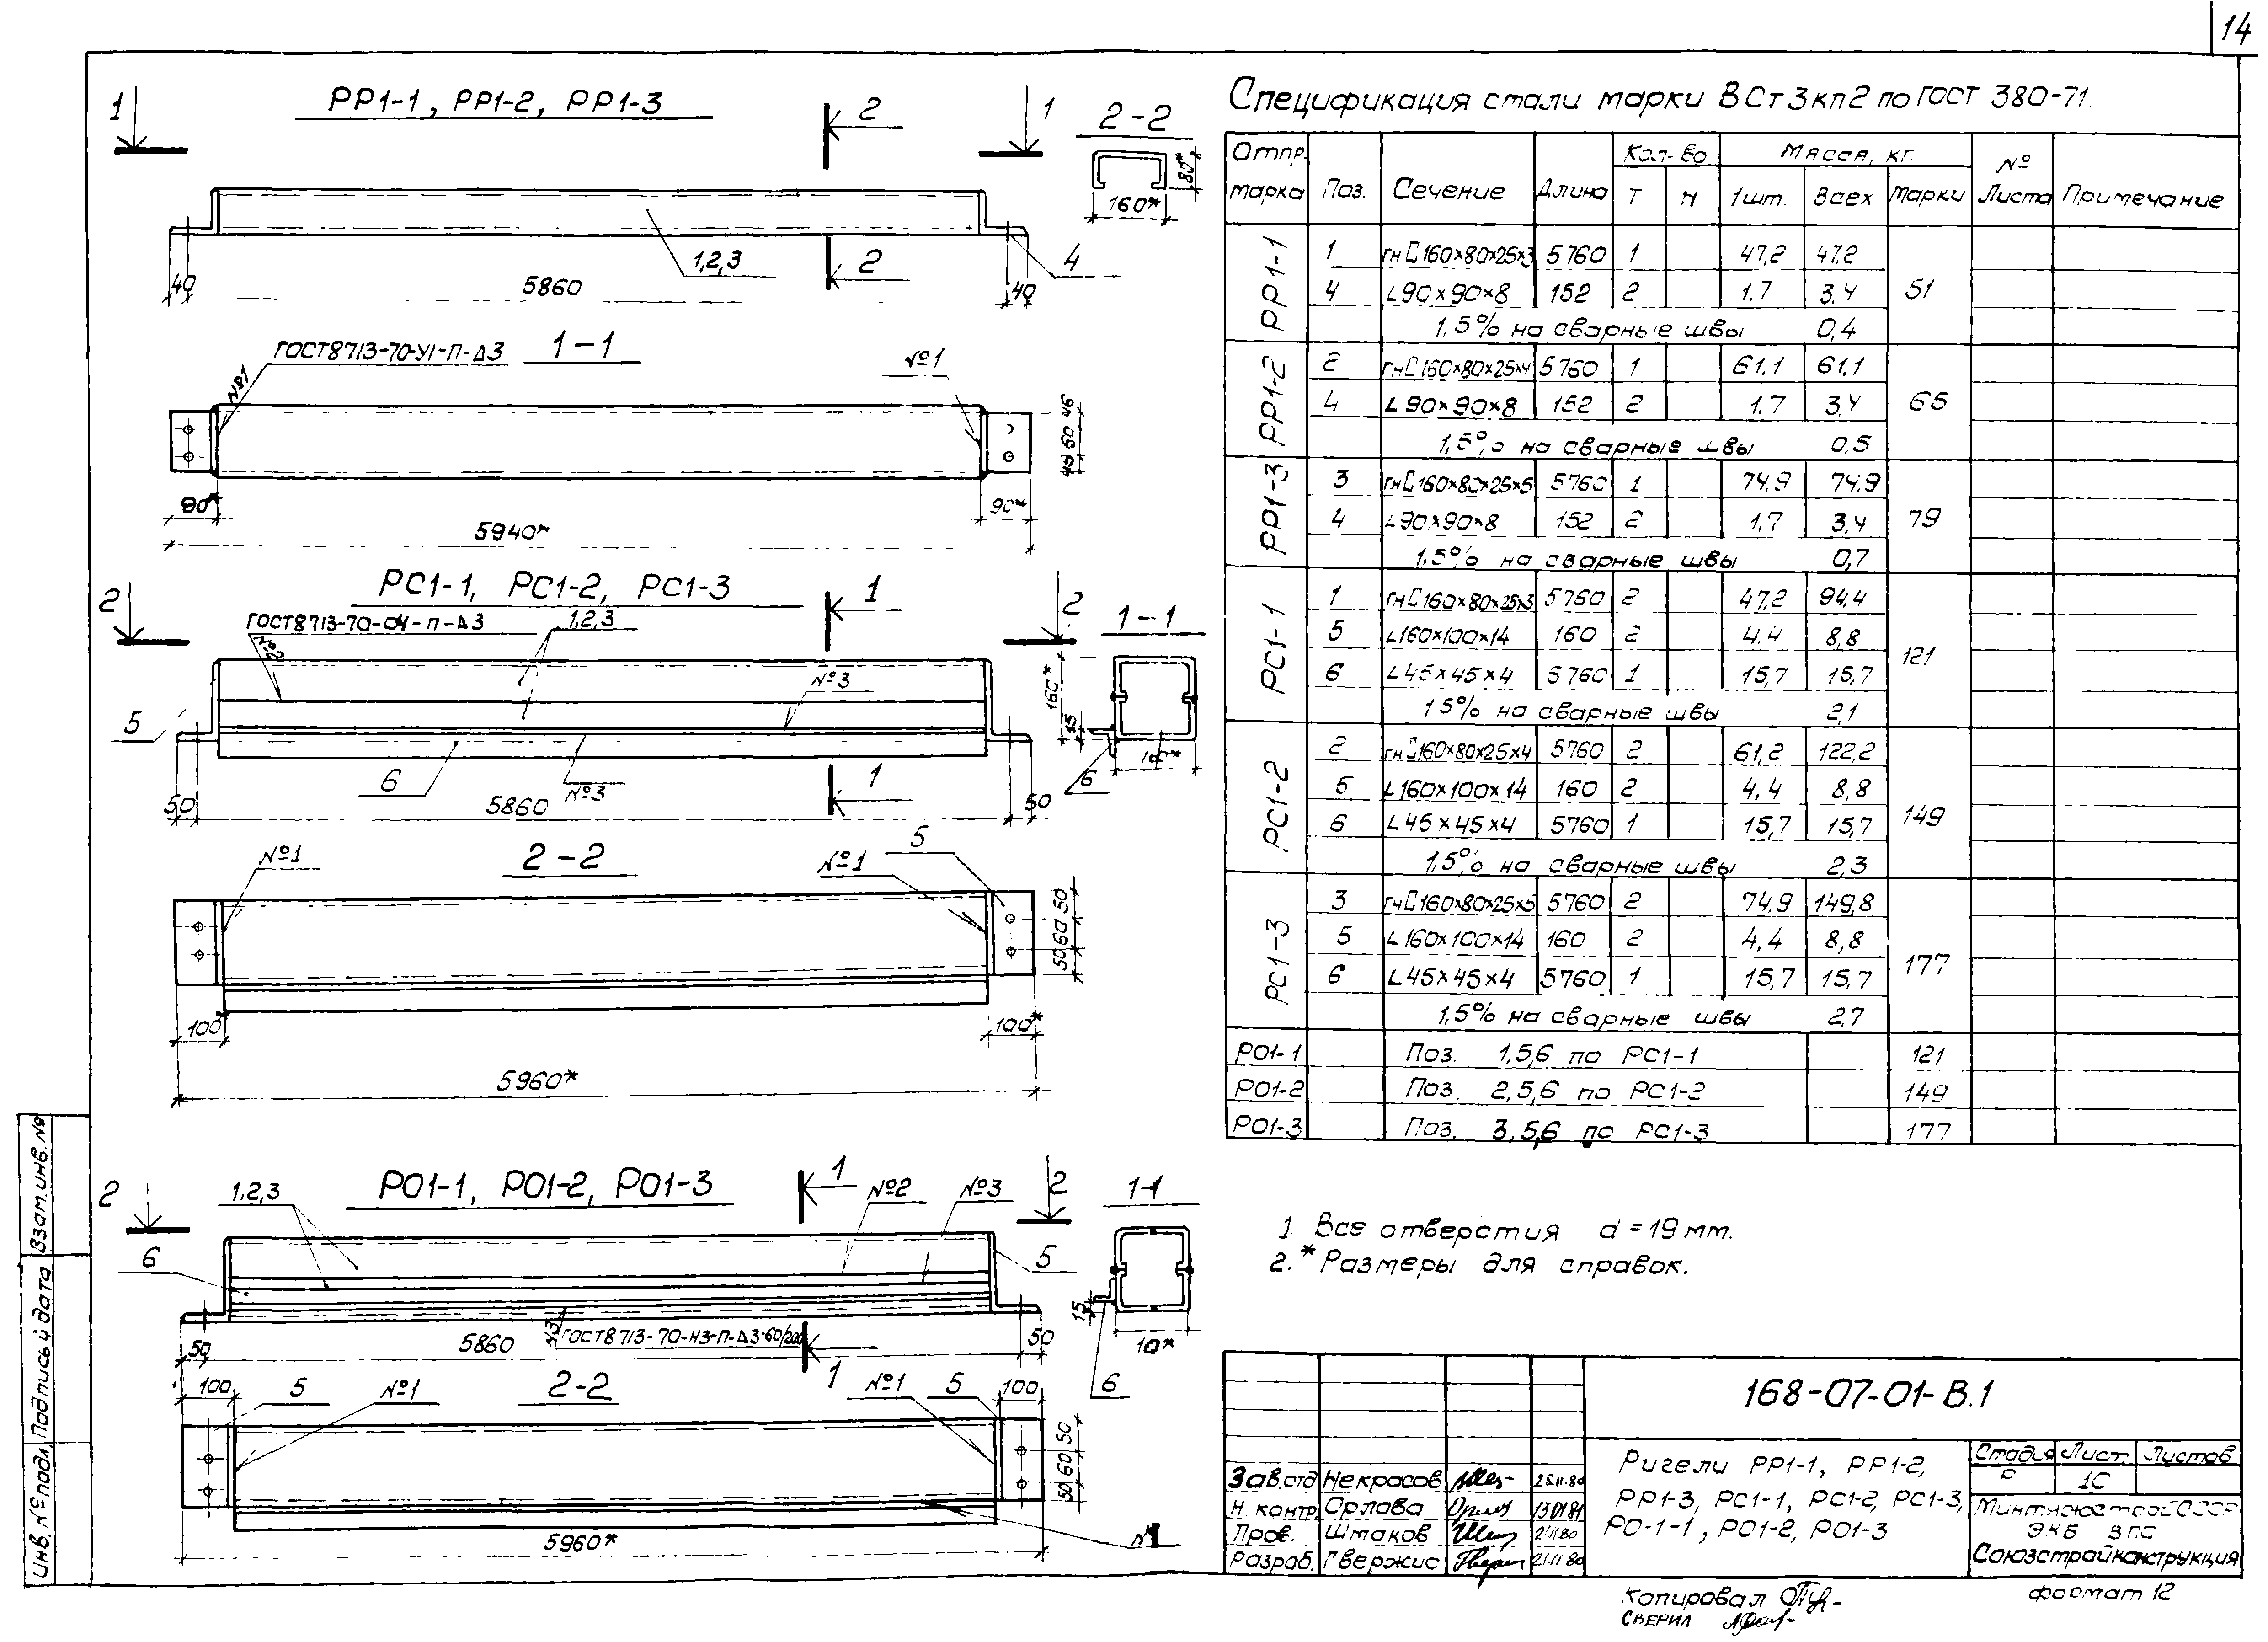 14
РР1-1, РР1-2, РР1-3
1 2 1
2-2
80*
160*
1,2,3
2
4
40 5860 40
ГОСТ 8713-70-У1-П-Δ3 1-1
№1
№1
46
60
46
90* 90*
5940*
РС1-1, РС1-2, РС1-3
2 1 2
1-1
ГОСТ 8713-70-04-П-Δ3 1,2,3
№2
№3
160*
15
5
6
№3
1
6
50 5860 50
№1 2-2 №1 5
50
60
50
100* 100*
5960*
РО1-1, РО1-2, РО1-3
2 1 2
1-1
1,2,3 №2 №3
6
5
15
№3
ГОСТ 8713-70-Н3-П-Δ3-60/200
50 5860 50
10*
1
6
100 5 №1 2-2 №1 5 100
50
60
50
5960*
Спецификация стали марки ВСт3кп2 по ГОСТ 380-71.
Отпр. марка Поз. Сечение Длина Кол-во Масса, кг. № Листа Примечание
Т Н 1шт. Всех Марки
РР1-1
1 гн[160×80×25×3 5760 1 47,2 47,2
4 L90×90×8 152 2 1.7 3.4 51
1,5% на сварные швы 0,4
РР1-2
2 гн[160×80×25×4 5760 1 61,1 61,1
4 L90×90×8 152 2 1.7 3,4 65
1,5% на сварные швы 0,5
РР1-3
3 гн[160×80×25×5 5760 1 74,9 74,9
4 L90×90×8 152 2 1,7 3,4 79
1.5% на сварные швы 0,7
РС1-1
1 гн[160×80×25×3 5760 2 47,2 94,4
5 L160×100×14 160 2 4.4 8,8 121
6 L45×45×4 5760 1 15,7 15,7
15% на сварные швы 2,1
РС1-2
2 гн[160×80×25×4 5760 2 61,2 122,2
5 L160×100×14 160 2 4,4 8,8 149
6 L45×45×4 5760 1 15,7 15,7
1,5% на сварные швы 2,3
РС1-3
3 гн[160×80×25×5 5760 2 74,9 149,8
5 L160×100×14 160 2 4,4 8,8 177
6 L45×45×4 5760 1 15,7 15,7
1,5% на сварные швы 2,7
РО1-1 Поз. 1,5,6 по РС1-1 121
РО1-2 Поз. 2,5,6 по РС1-2 149
РО1-3 Поз. 3,5,6 по РС1-3 177
1. Все отверстия d=19мм.
2.* Размеры для справок.
168-07-01-В.1
Ригели РР1-1, РР1-2,
РР1-3, РС1-1, РС1-2, РС1-3,
РО-1-1, РО1-2, РО1-3
Стадия Лист Листов
Р 10
Минтяжстрой СССР
ЭКБ
Союзстройконструкция
Зав.отд Некрасов 25.11.80
Н. контр. Орлова 13.01.81
Пров. Шмаков 21.11.80
Разраб. Гвержис 21.11.80
Копировал
Сверил
формат 12
Инв. № подл. Подпись и дата Взам.инв.№